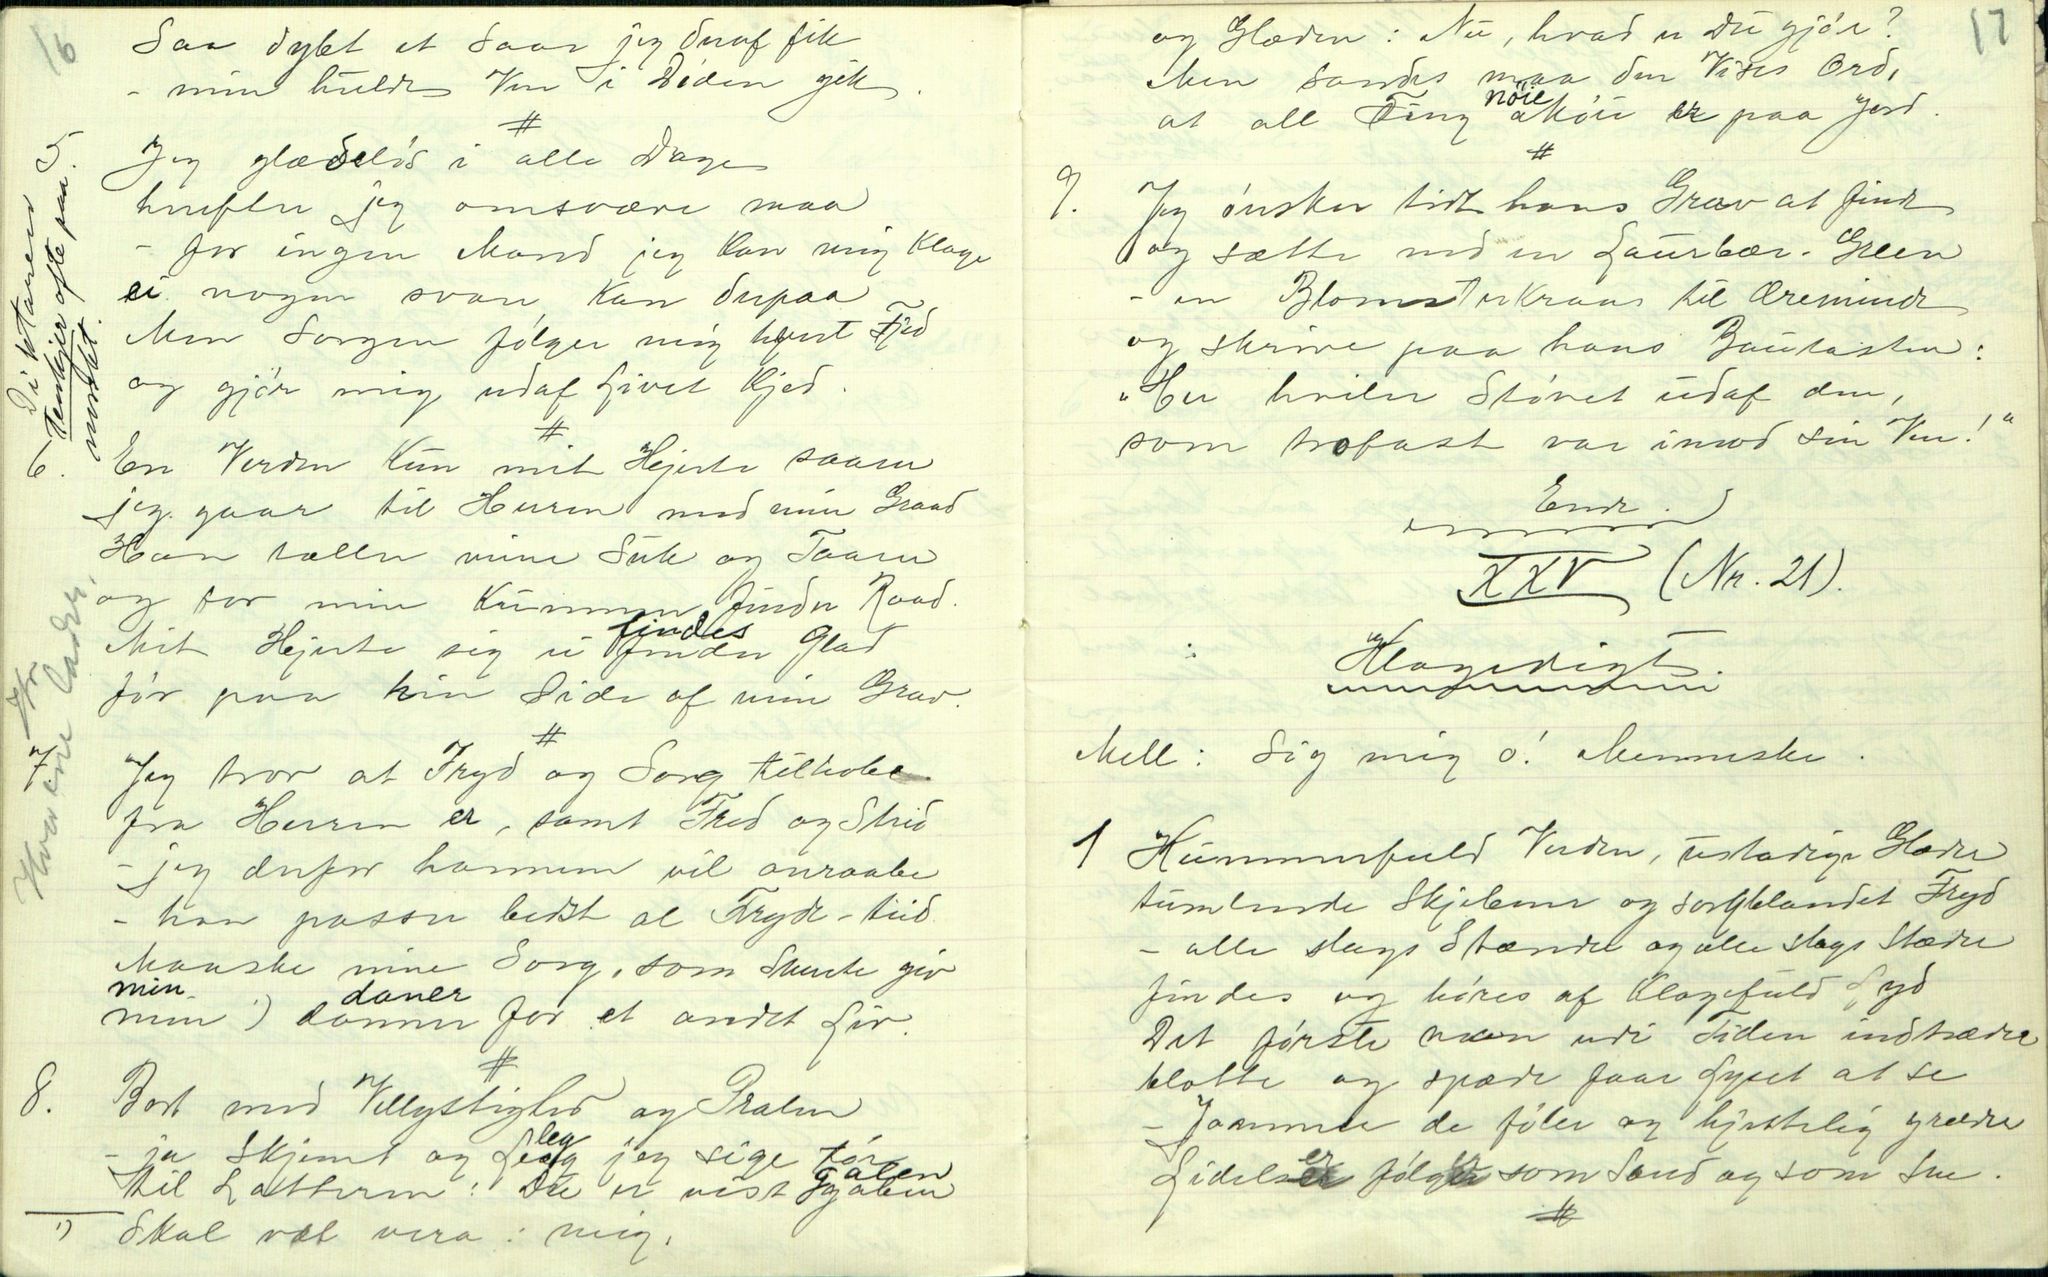 16
Saa dybt et Saar jeg deraf fik
- min huldes Ven i Døden gik.
#
5. Jeg glædeløs i alle Dage
herefter jeg omsvære maa
- for ingen Mand jeg kan mig klage
ei nogen svare kan derpaa
Men Sorgen følger mig hvert Fjed
og gjör mig udaf Livet kjed.
#
6. En Verden kun mit Hjerte saarer
jeg gaar til Herren med min Graad
Han tæller mine Suk og Taarer
og for min Kummer finder Raad.
findes
Mit Hjerte sig ei finder Glad
før paa hin Side af min Grav.
#
7. Jeg tror at Fryd og Sorg tilhobe
fra Herren er, samt Fred og Strid
- jeg derfor hannem vil anraabe
- han passer bedst al Fryde-tiid
Maaske mine Sorg, som Skrerte giv
min daner
min 1) danner for et andet Liv.
#
8. Bort med Vellystighed og Pralen
leg
- ja Skjemt og Leeg jeg sige tör
galen
til Latteren: Du er vist galen
1) Skal væl vera: mig.
Diktaren
tenkjer ofte paa
mordet.
Hr.
17
og Glæden: Nu, hvad er Du gjör?
Men sandes maa den Vises Ord,
nöie
at all Ting akøie er paa Jord.
#
9. Jeg ønsker tidt hans Grav at finde
og sætte ned en Laurbær-Green
- en Blomsterkrans til Æreminde
og skrive paa hans Bautasten:
"Her hviler Støvet udaf den,
som trofast var imod sin Ven!"
Ende.
XXV (Nr. 21).
Klagedigt.
Mell: Sig mig o! Menneske.
1 Kummerfuld Verden, ustadige Glæder
tumlende Skjebner og sorgblandet Fryd
- alle slags Stænder og alle slags Stæder
findes og høres af klagefuld Lyd
Det første naar udi Tiden indtræder
blotte og spæde faar Lyset at se
- Jammer de føler og hjertelig græder
Lidelser følger som Sand og som Sne.
#